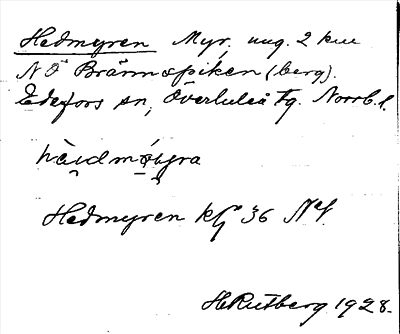 Hedmyren Myr, ung. 2 km
NÖ Brännspiken (berg).
Edefors sn, Överluleå tg. Norrb. l.
Hedmyren kG 36 NV.
HRutberg 1928.